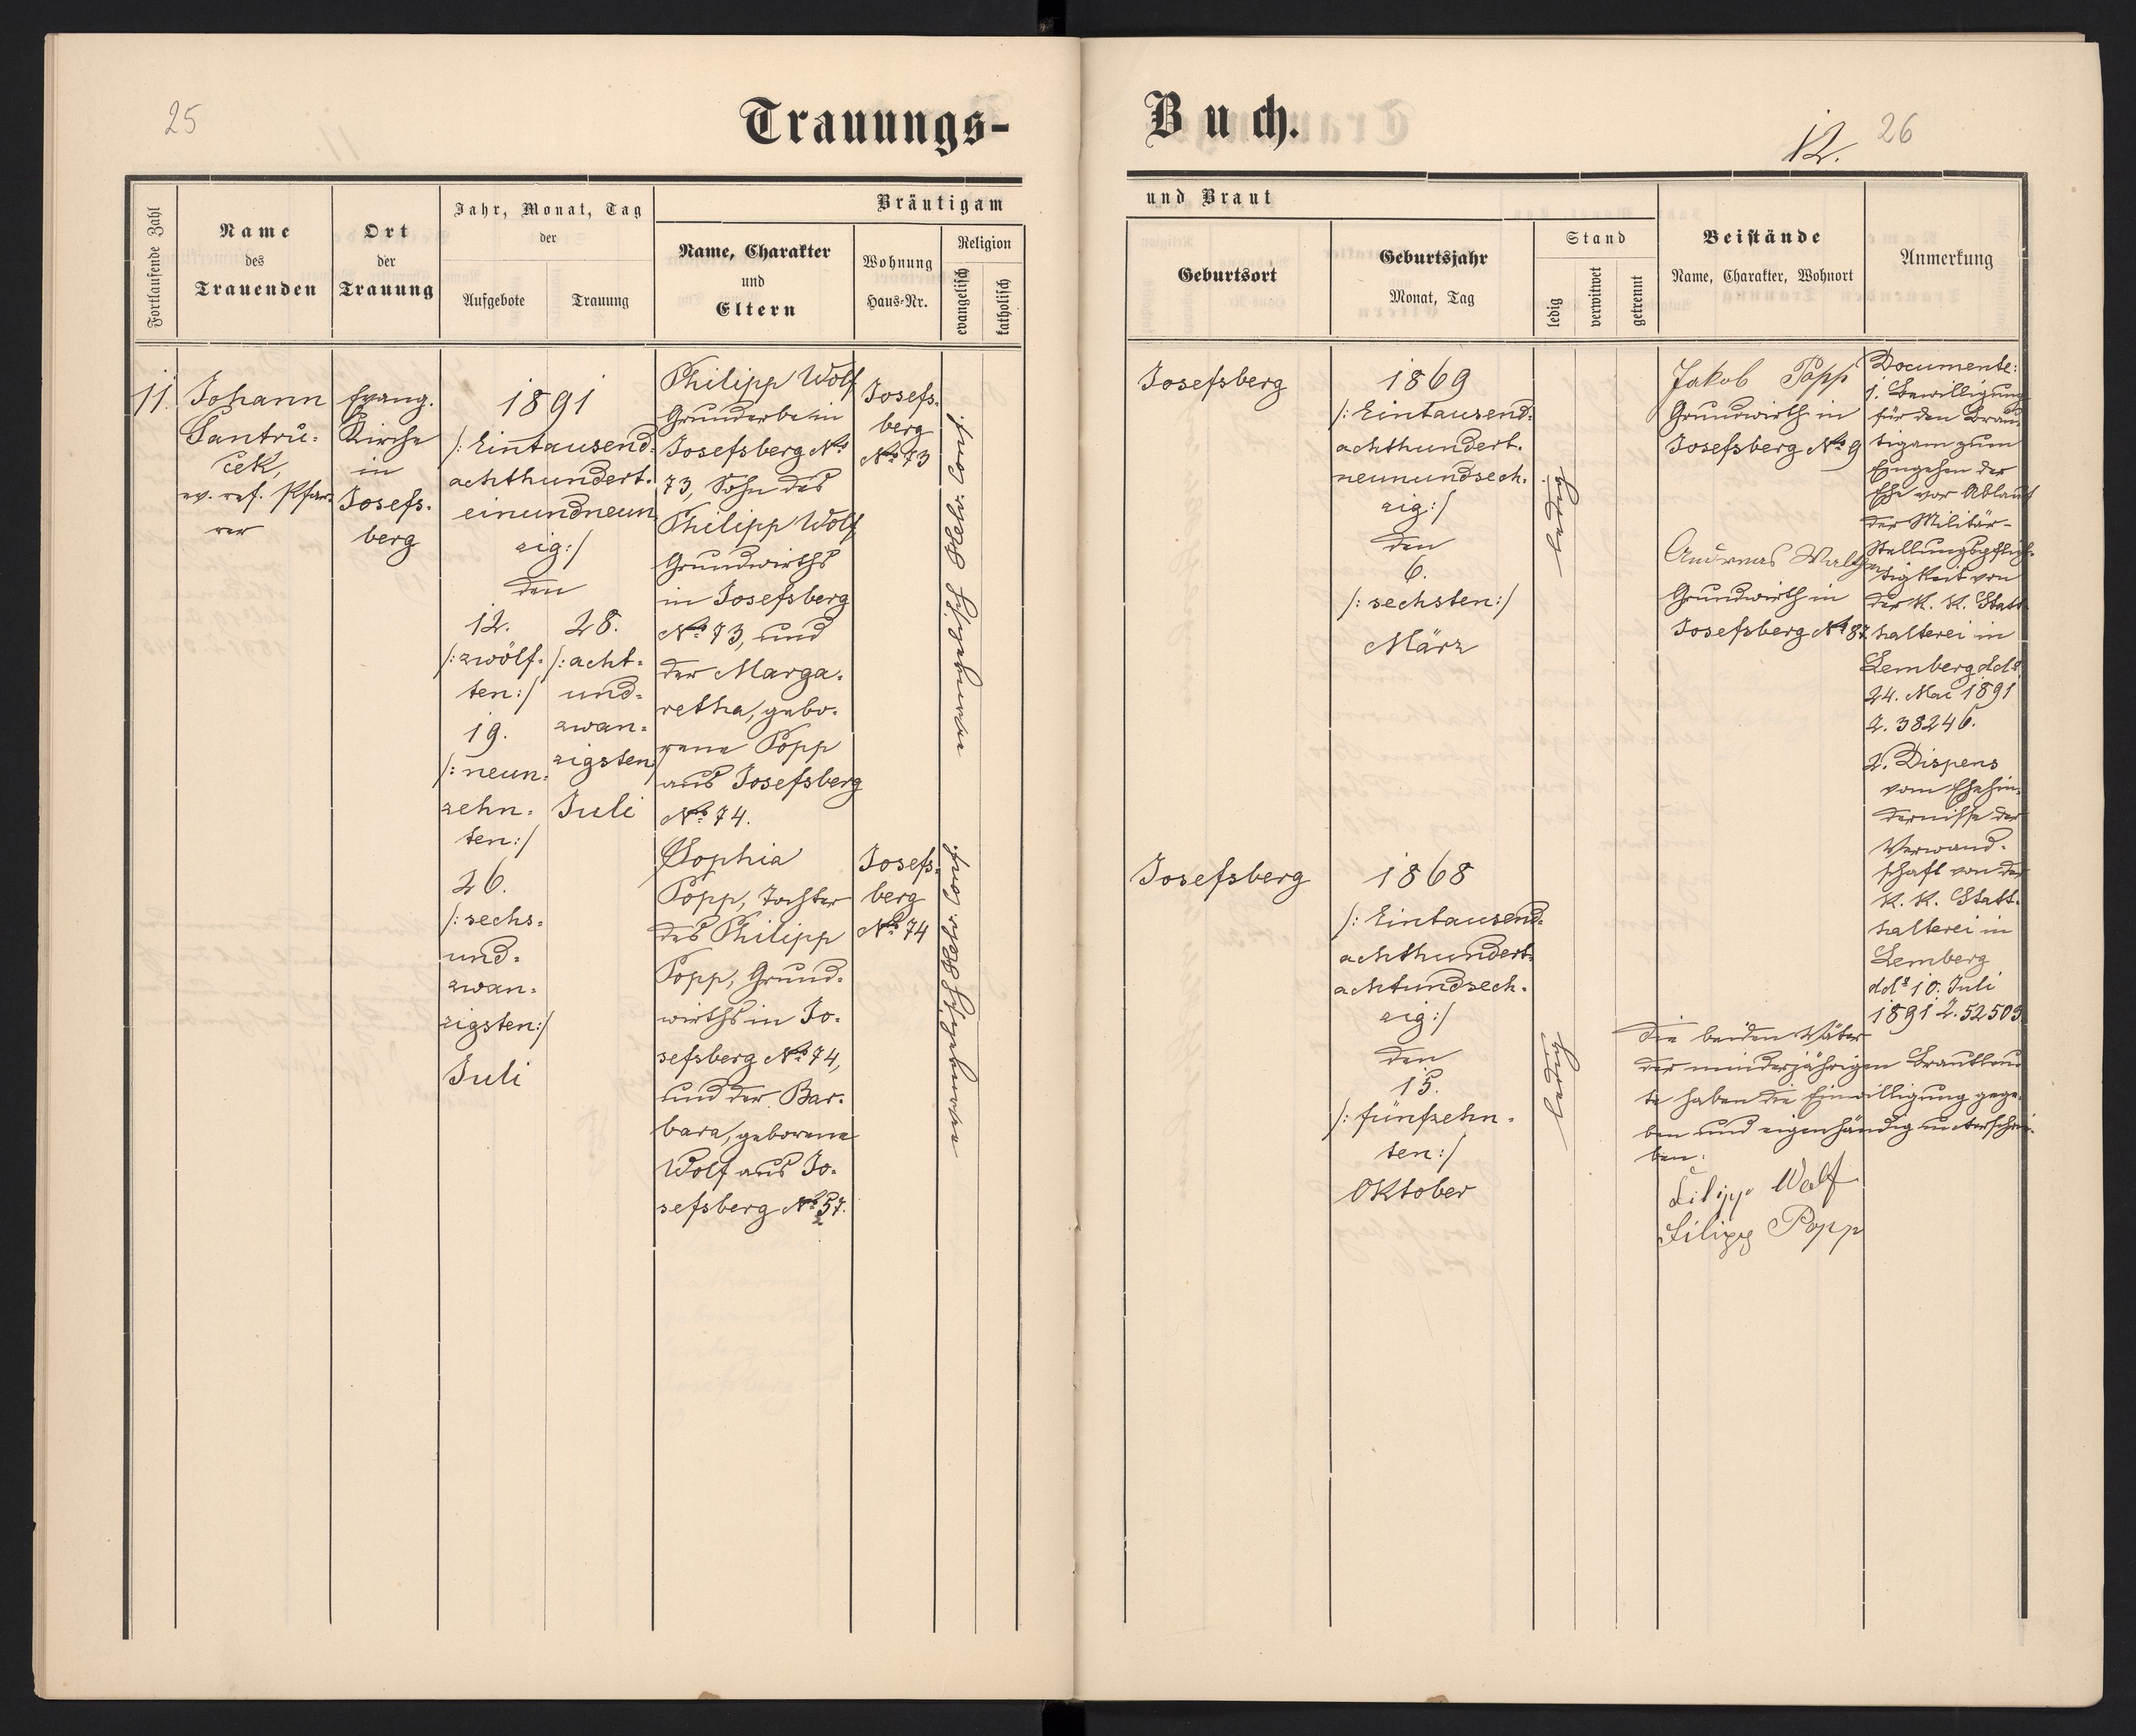 25
Trauungs-
Fortlaufende Zahl
Name
des
Trauenden
Ort
der
Trauung
Jahr, Monat, Tag
der
Aufgebote
Trauung
Bräutigam
Name, Charakter
und
Eltern
Wohnung
Haus-Nr.
Religion
evangelisch
katholisch
11
Johann
Santrů-
ček,
ev. ref. Pfar-
rer
Evang.
Kirche
in
Josefs-
berg
1891
/: Eintausend-
achthundert-
einundneun
zig :/
den
12.
/: zwölf-
ten :/
19.
/: neun-
zehn-
ten :/
26.
/: sechs-
und-
zwan-
zigsten :/
Juli
28.
/: acht-
und-
zwan-
zigsten/
Juli
Philipp Wolf
Grunderbe in
Josefsberg No
73, Sohn des
Philipp Wolf
Grundwirths
in Josefsberg
No 73, und
der Marga-
retha, gebo-
rene Popp
aus Josefsberg
No 74.
Josefs-
berg
No 73
evangelisch Helv. Conf.
Sophia
Popp, Tochter
des Philipp
Popp, Grund-
wirths in Jo-
sefsberg No 74,
und der Bar-
bara, geborene
Wolf aus Jo-
sefsberg No 57.
Josefs-
berg
No 74
evangelisch Helv. Conf.
Buch.
12.
26
und Braut
Geburtsort
Geburtsjahr
Monat, Tag
Stand
ledig
verwitwet
getrennt
Beistände
Name, Charakter, Wohnort
Anmerkung
Josefsberg
1869
/: Eintausend-
achthundert-
neunundsech-
zig :/
den
6.
/: sechsten :/
März
ledig
Jakob Popp
Grundwirth in
Josefsberg No 9
Andreas
Grundwirth in
Josefsberg No 87.
Josefsberg
1868
/: Eintausend-
achthundert-
achtundsech-
zig :/
den
15.
/: fünfzehn-
ten :/
Oktober
ledig
Documente:
1. Bewilligung
für den Bräu-
tigam zum
Eingehen der
Ehe vor Ablauf
der Militär-
Stellungspflich-
tigkeit von
der K. K. Statt-
halterei in
Lemberg ddo
24. Mai 1891
Z. 38246.
2. Dispens
vom Ehehin-
dernisse der
Verwand-
schaft von der
K. K. Statt-
halterei in
Lemberg
ddo 10. Juli
1891 Z. 52509
Die beiden Väter
der minderjährigen Brautleu-
te haben die Einwilligung gege-
ben und eigenhändig unterschrie-
ben:
Filipp Wolf
Filipp Popp